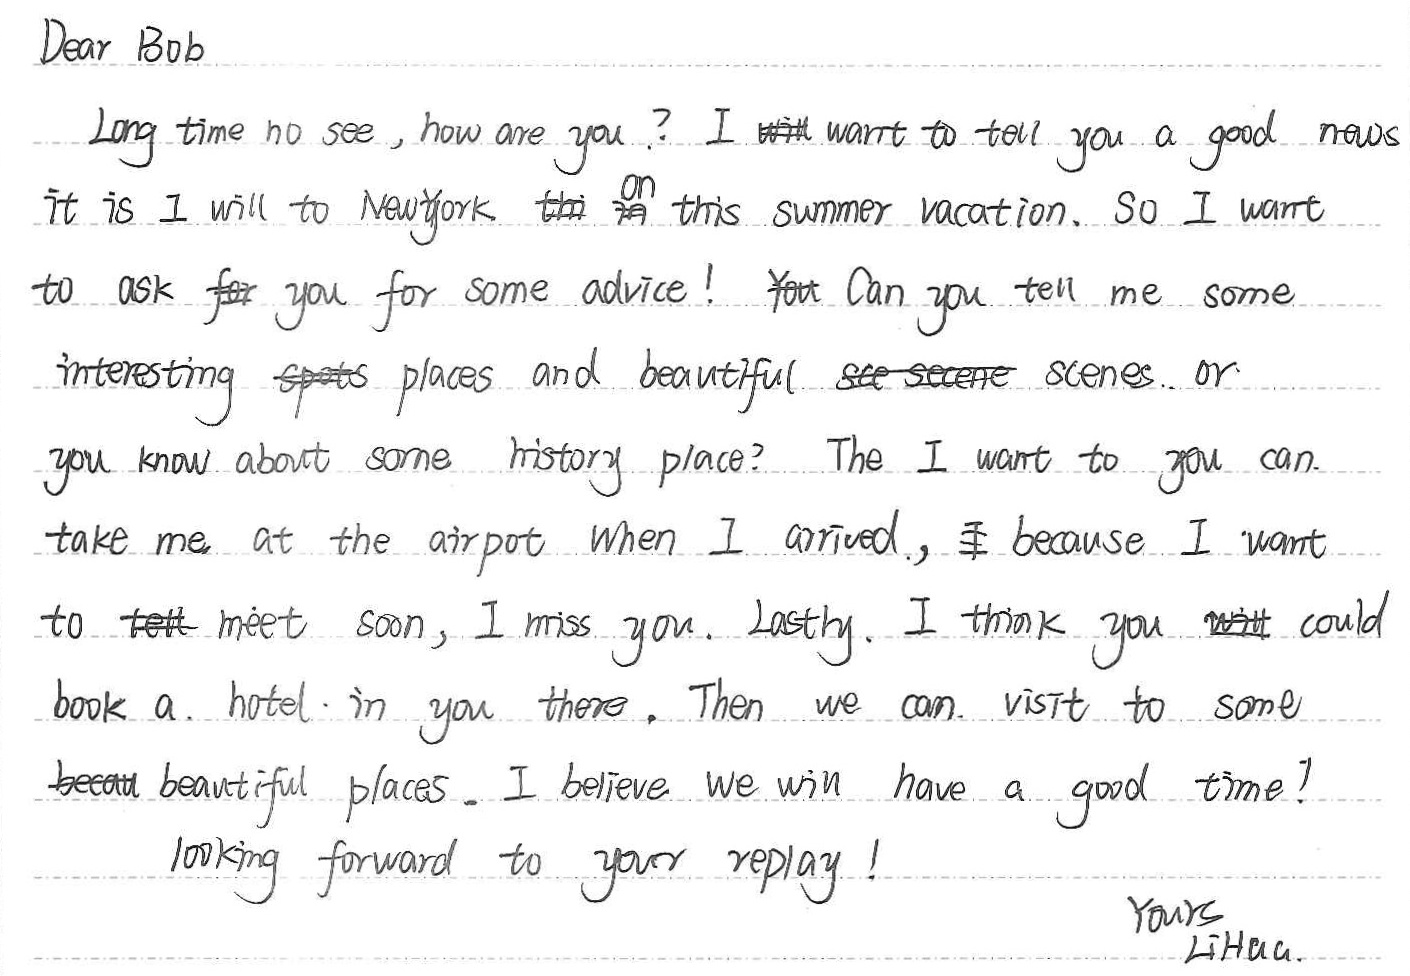 Dear Bob
Long time no see, how are you? I want to tell you a good news
it is I will to NewYork on this summer vacation. So I want
to ask you for some advice! Can you tell me some
interesting places and beautiful scenes. or
you know about some history place? The I want to you can.
take me at the airpot when I arrived., because I want
to meet soon, I miss you. Lastly. I think you could
book a. hotel. in you there. Then we can. visit to some
beautiful places. I believe we will have a good time!
looking forward to your replay!
Yours
LiHua.